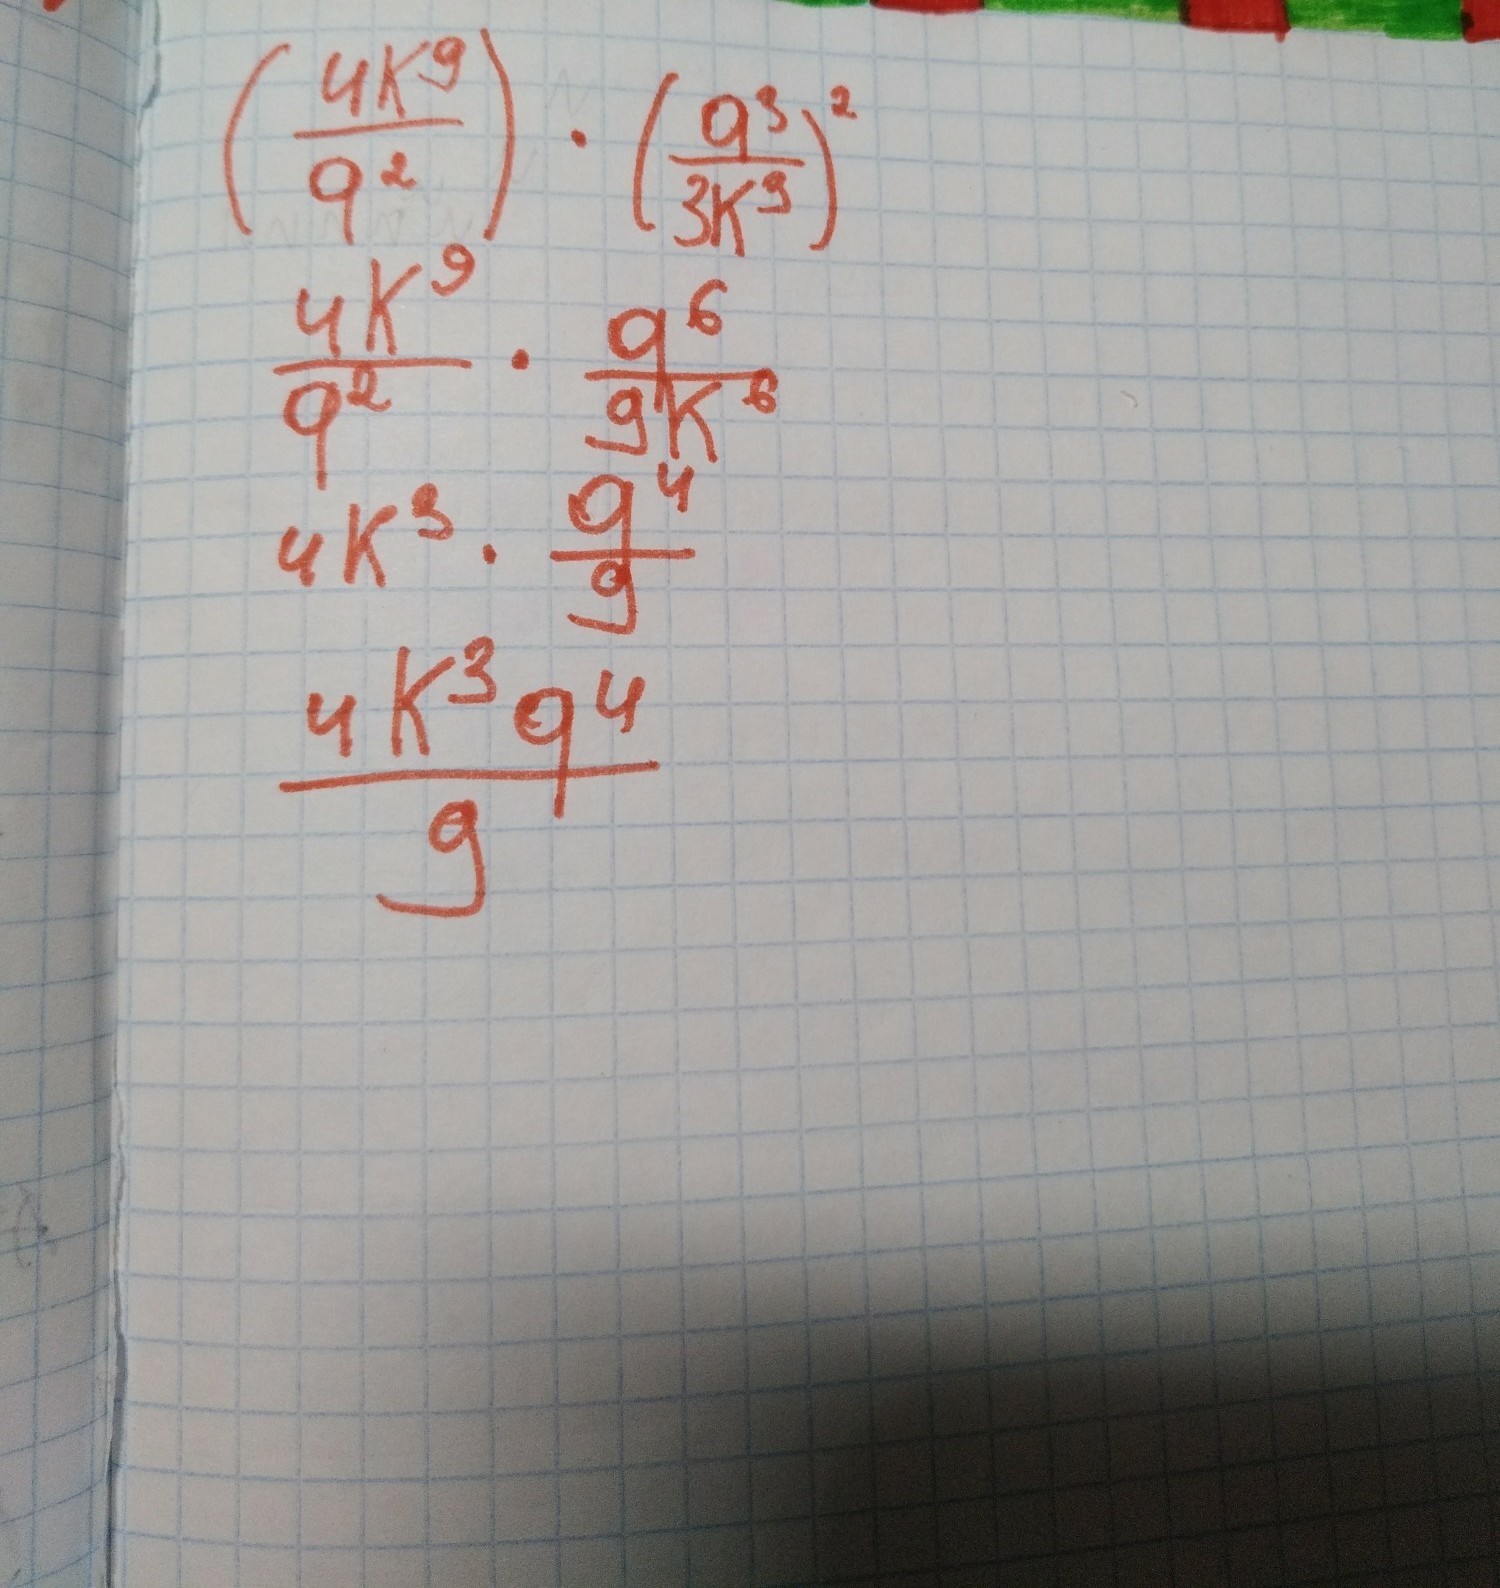 (4K⁹/q²) · (q³/3K³)²
4K⁹/q² · q⁶/9K⁶
4K³ · q⁴/9
4K³q⁴/9